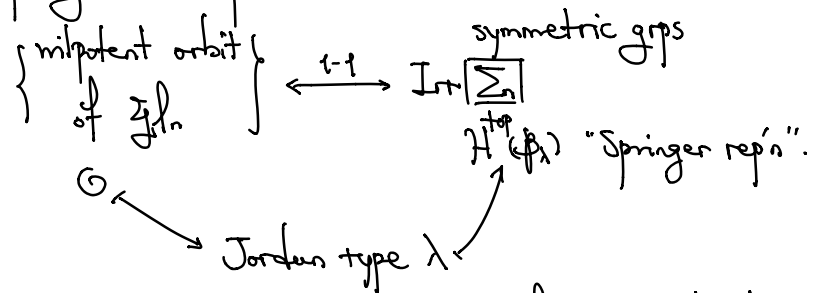 symmetric grps
{nilpotent orbit of 𝔤𝔩ₙ} ⟷ 1-1 Irr Σₙ
H^top(β_λ) "Springer rep'n".
O ↦ Jordan type λ